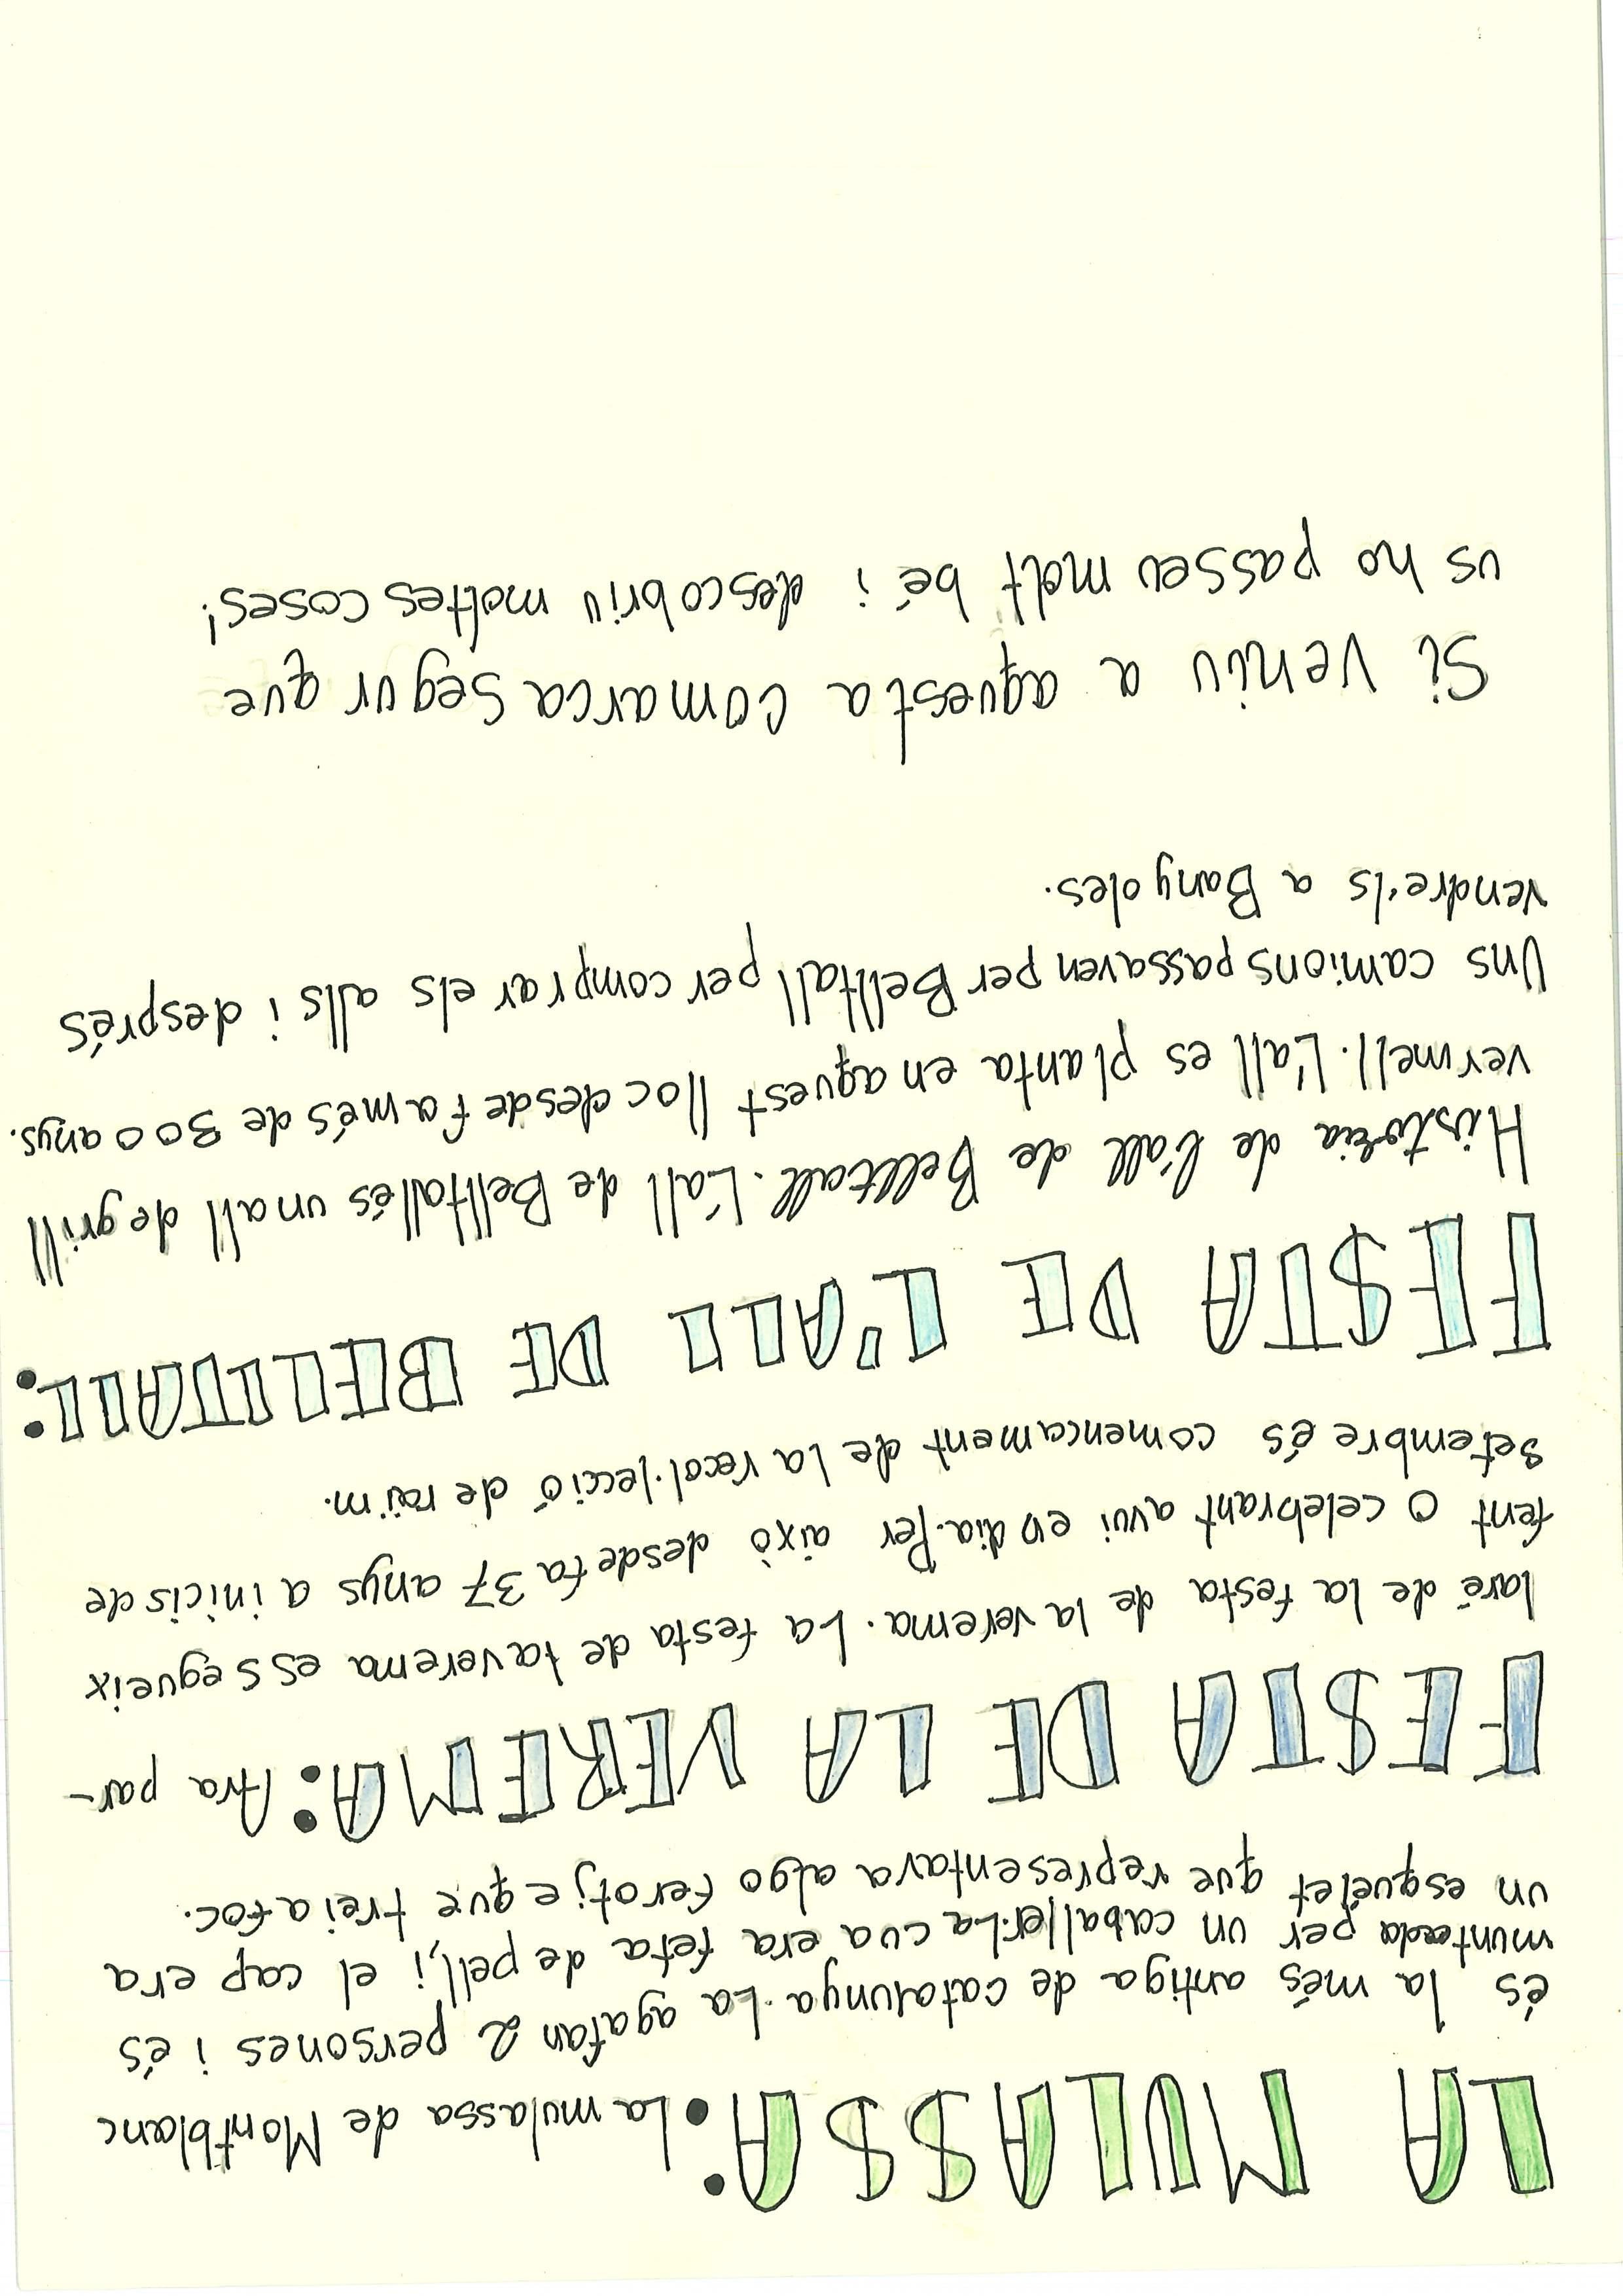 LA MULASSA: La mulassa de Montblanc
és la més antiga de catalunya. La agafan 2 persones i és
muntada per un caballer. La cua era feta de pell, i el cap era
un esquelet que representava algo ferotje que treia foc.
FESTA DE LA VEREMA: Ara par-
laré de la festa de la verema. La festa de la verema es segueix
fent o celebrant avui en dia. Per això desde fa 37 anys a inicis de
Setembre és comencament de la recol·lecció de raïm.
FESTA DE L'ALL DE BELLTALL:
Història de l'all de Belltall. L'all de Belltall és un all de grill
vermell. L'all es planta en aquest lloc desde fa més de 300 anys.
Uns camions passaven per Belltall per comprar els alls i després
vendre'ls a Banyoles.
Si veniu a aquesta comarca segur que
us ho passeu molt bé i descobriu moltes coses!